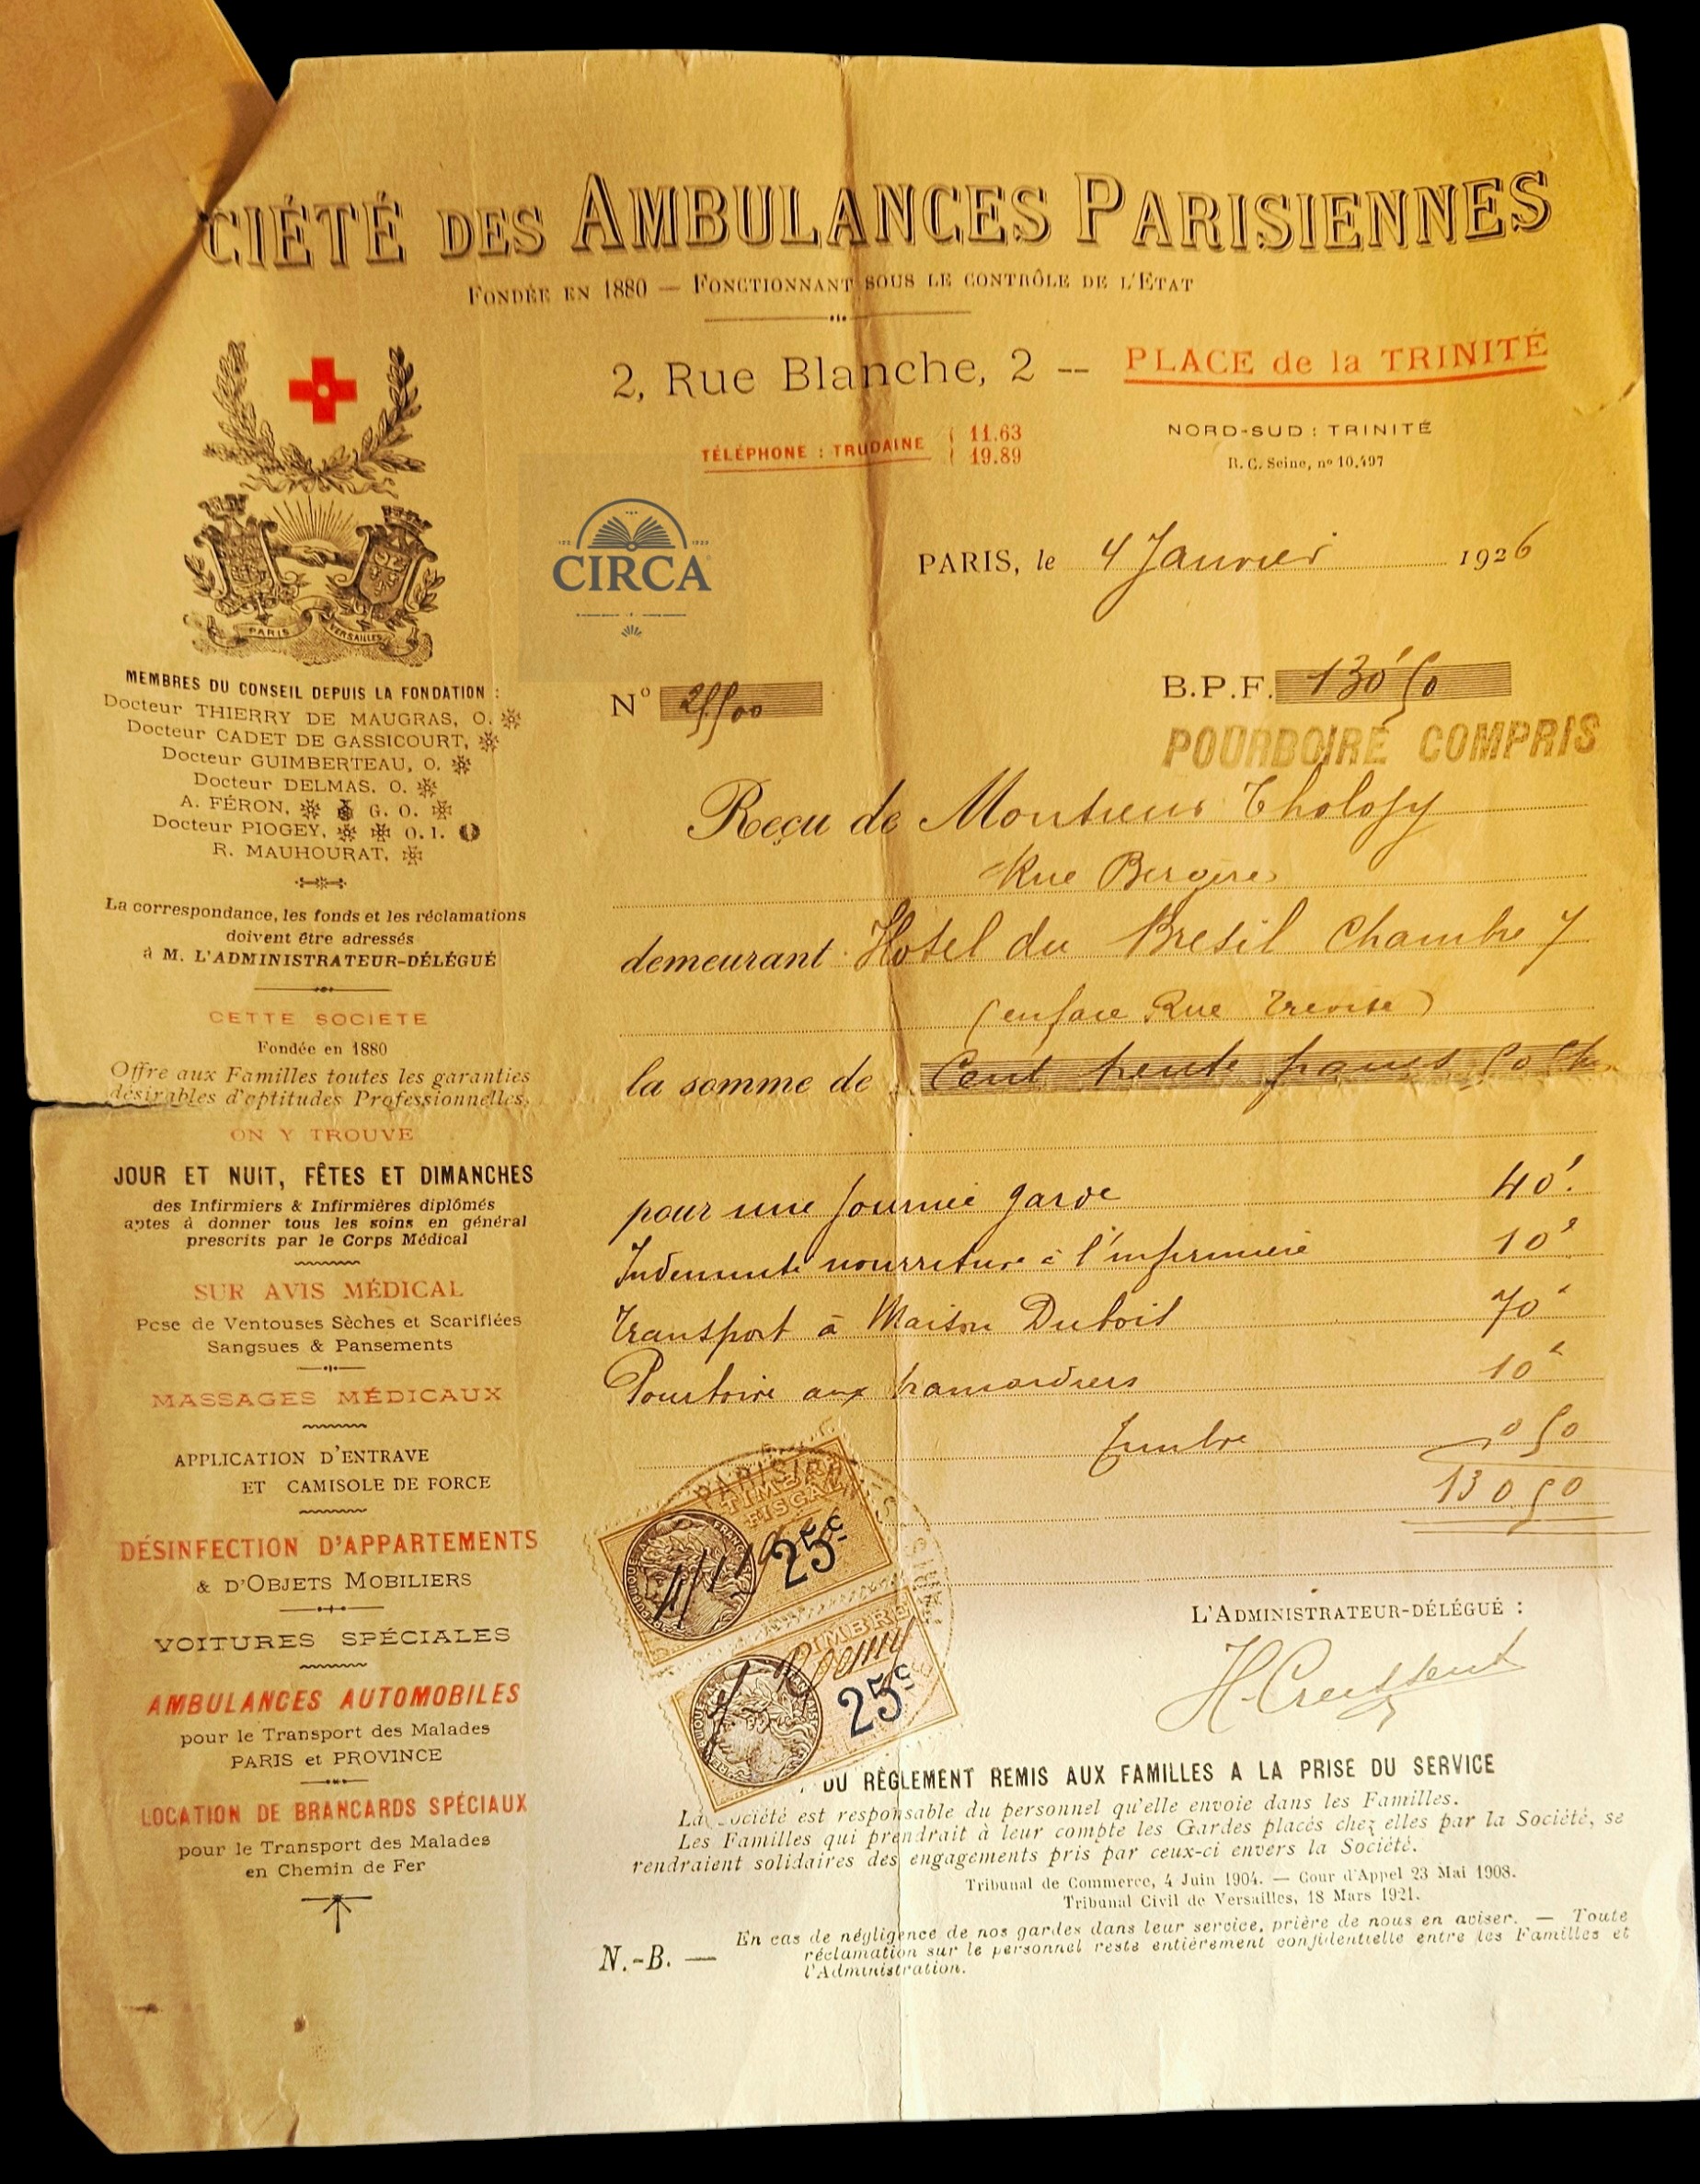 CIÉTÉ DES AMBULANCES PARISIENNES
FONDÉE EN 1880 — FONCTIONNANT SOUS LE CONTRÔLE DE L'ETAT
2, Rue Blanche, 2 -- PLACE de la TRINITÉ
TÉLÉPHONE : TRUDAINE { 11.63
19.89
NORD-SUD : TRINITÉ
R. C. Seine, nº 10.497
CIRCA
PARIS, le 4 Janvier 1926
PARIS VERSAILLES
MEMBRES DU CONSEIL DEPUIS LA FONDATION :
Docteur THIERRY DE MAUGRAS, O.
Docteur CADET DE GASSICOURT,
Docteur GUIMBERTEAU, O.
Docteur DELMAS, O.
A. FÉRON, G. O.
Docteur PIOGEY, O. I.
R. MAUHOURAT,
La correspondance, les fonds et les réclamations
doivent être adressés
à M. L'ADMINISTRATEUR-DÉLÉGUÉ
CETTE SOCIETE
Fondée en 1880
Offre aux Familles toutes les garanties
désirables d'aptitudes Professionnelles.
ON Y TROUVE
JOUR ET NUIT, FÊTES ET DIMANCHES
des Infirmiers & Infirmières diplômés
aptes à donner tous les soins en général
prescrits par le Corps Médical
SUR AVIS MÉDICAL
Pose de Ventouses Sèches et Scarifiées
Sangsues & Pansements
MASSAGES MÉDICAUX
APPLICATION D'ENTRAVE
ET CAMISOLE DE FORCE
DÉSINFECTION D'APPARTEMENTS
& D'OBJETS MOBILIERS
VOITURES SPÉCIALES
AMBULANCES AUTOMOBILES
pour le Transport des Malades
PARIS et PROVINCE
LOCATION DE BRANCARDS SPÉCIAUX
pour le Transport des Malades
en Chemin de Fer
Nº
B.P.F. 130f50
POURBOIRE COMPRIS
Reçu de Monsieur
Rue Bergère
demeurant Hotel du Bresil Chambre 7
(enface Rue Trevise)
la somme de Cent trente francs 50
pour une Journée garde 40f.
Indemnité nourriture à l'infirmière 10f
Transport à Maison Dubois 70f
Pourboire aux brancardiers 10f
Timbre 0 50
130.50
TIMBRE
FISCAL
25c
TIMBRE
25c
L'ADMINISTRATEUR-DÉLÉGUÉ :
DU RÈGLEMENT REMIS AUX FAMILLES A LA PRISE DU SERVICE
La Société est responsable du personnel qu'elle envoie dans les Familles.
Les Familles qui prendrait à leur compte les Gardes placés chez elles par la Société, se
rendraient solidaires des engagements pris par ceux-ci envers la Société.
Tribunal de Commerce, 4 Juin 1904. — Cour d'Appel 23 Mai 1908.
Tribunal Civil de Versailles, 18 Mars 1921.
N.-B. — En cas de négligence de nos gardes dans leur service, prière de nous en aviser. — Toute
réclamation sur le personnel reste entièrement confidentielle entre les Familles et
l'Administration.